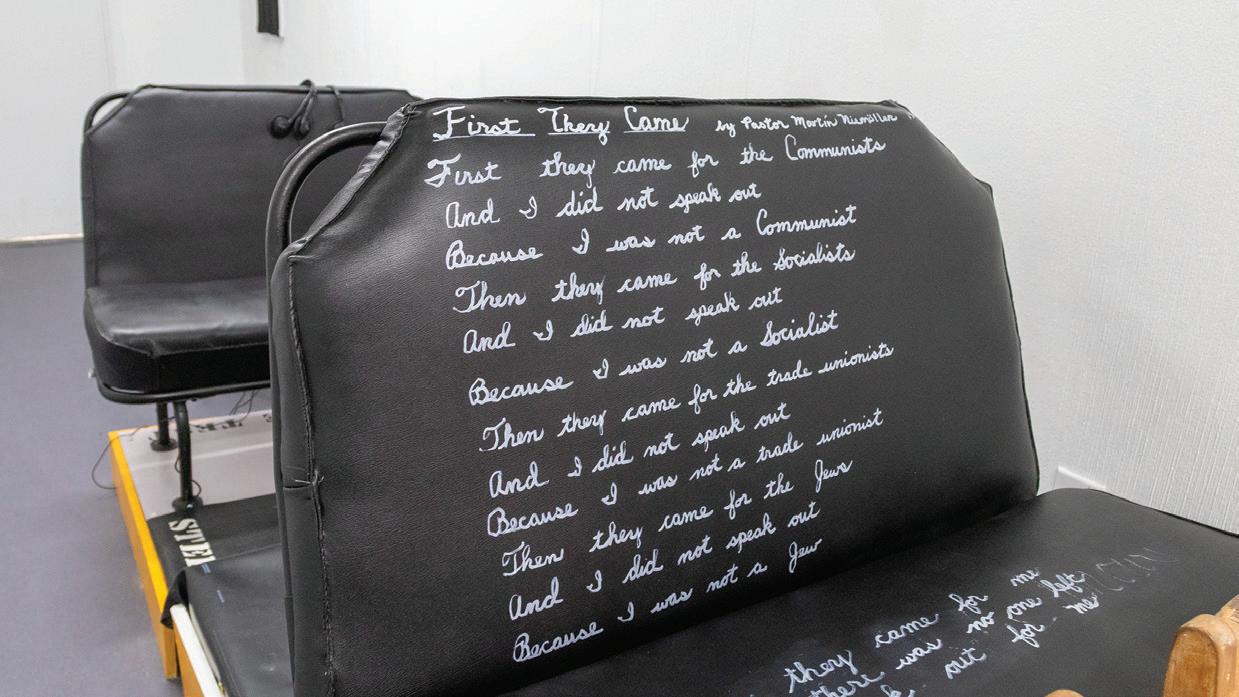 First They Came by Pastor Martin Niemöller
First they came for the Communists
And I did not speak out
Because I was not a Communist
Then they came for the Socialists
And I did not speak out
Because I was not a Socialist
Then they came for the trade unionists
And I did not speak out
Because I was not a trade unionist
Then they came for the Jews
And I did not speak out
Because I was not a Jew
they came for me
there was no one left
out for me